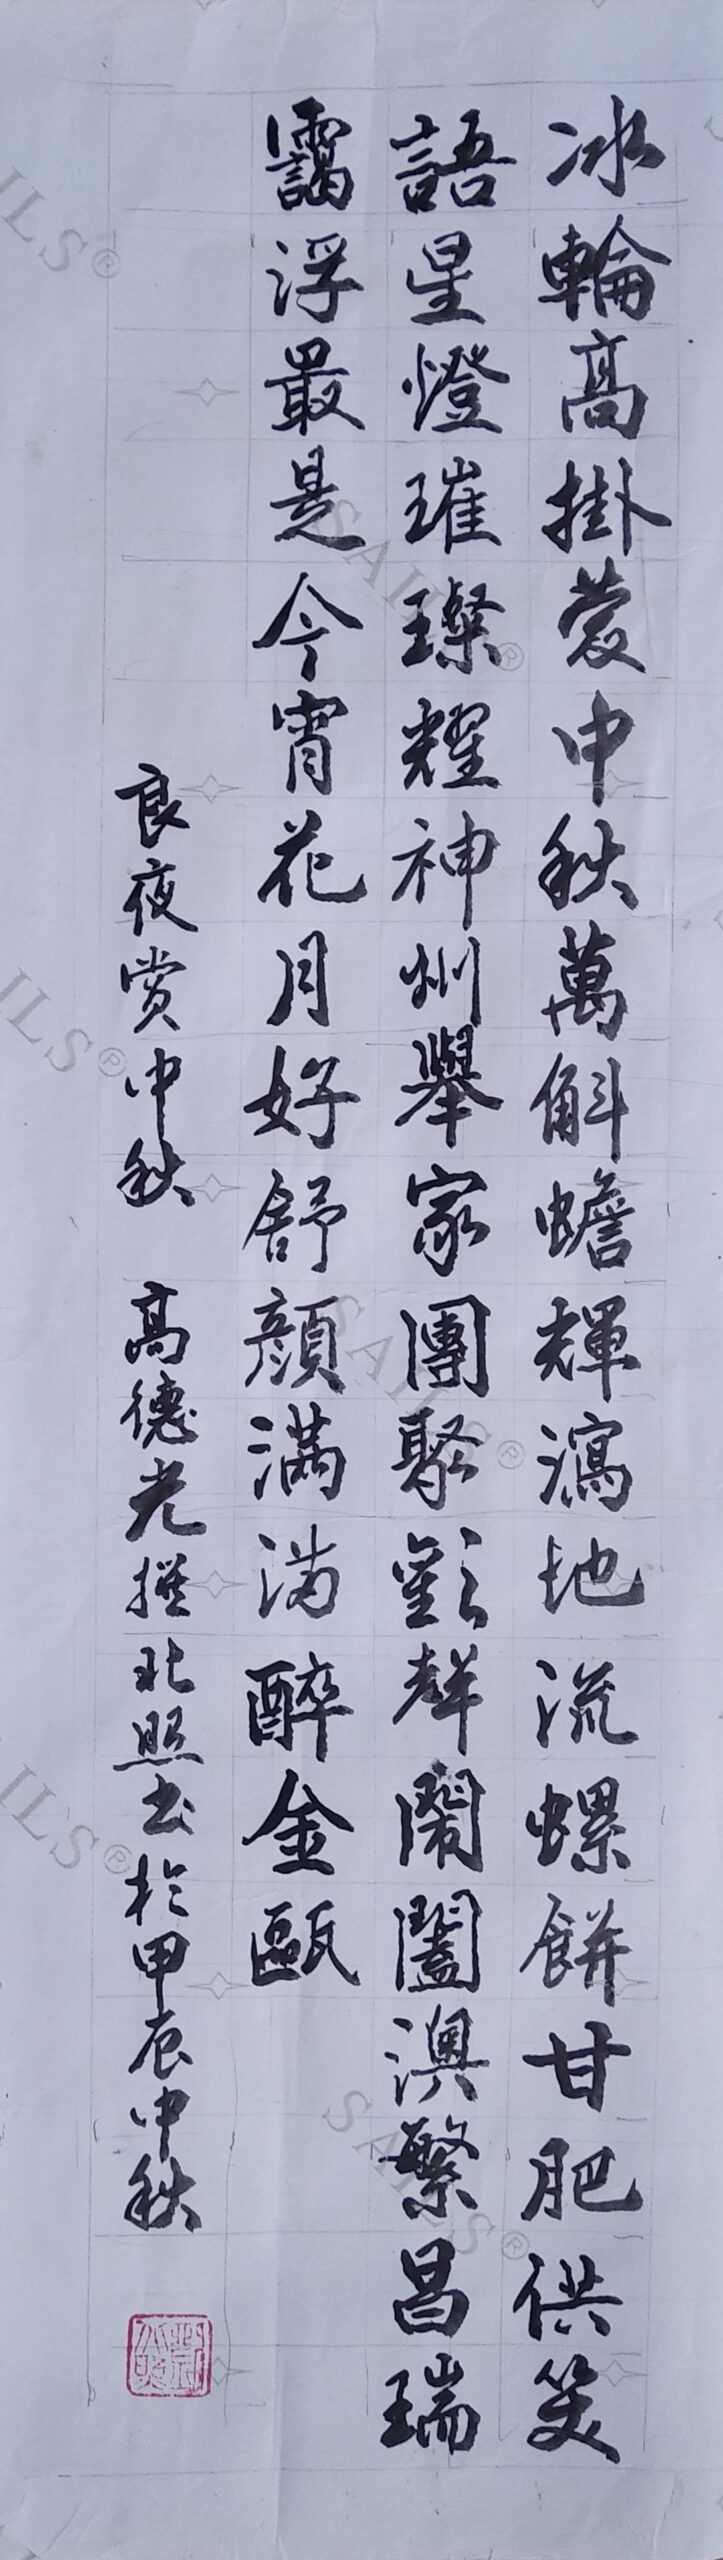 冰輪高掛慶中秋萬斛蟾輝瀉地流螺餅甘肥供笑
語星燈璀璨耀神州舉家團聚歡聲鬧闔澳繁昌瑞
靄浮最是今宵花月好舒顏滿滿醉金甌
良夜賞中秋 高德光撰北照書於甲辰中秋
SAILS®